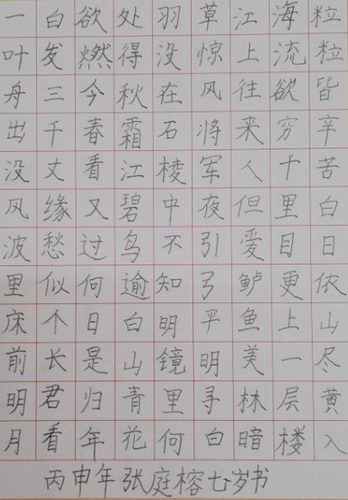 粒粒皆辛苦白日依山尽黄入
海流欲穷千里目更上一层楼
江上往来人但爱鲈鱼美林暗
草惊风将军夜引弓平明寻白
羽没在石棱中不知明镜里何
处得秋霜江碧鸟逾白山青花
欲燃今春看又过何日是归年
白发三千丈缘愁似个长君看
一叶舟出没风波里床前明月
丙申年张庭榕七岁书